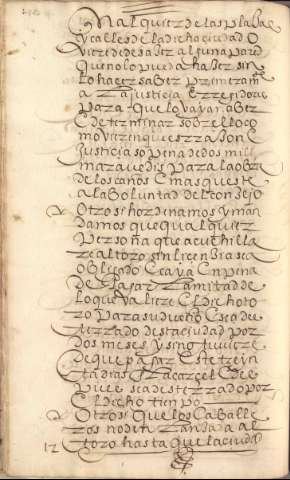 en al quier de las plazas
y calles de la dicha ciudad o
quiere de desazer alguna pared
que no lo pueda hazer sin
lo hazer saber primeram
a la justicia e Regidores
para que lo vayan a ber
e determinar sobre ello co
mo vieren que es razon e
justicia so pena de dos mill
maravedis para la obra
de los caños e mas que este
a la boluntad del concejo
Otrosi hordenamos y man
damos que qualquier
persona que acuchilla
re al toro sin licencia sea
obligado e caya en pena
de pagar la mitad de
lo que valiere el dicho to
ro para su dueño e sea de
sterrado desta ciudad por
dos meses y si no tuviere
de que pagar este treyn
ta dias en la carzel e des
pues sea desterrado por
el dicho tienpo
Otrosi que los caballe
ros no den lanzada al
12 toro hasta que la ciudad